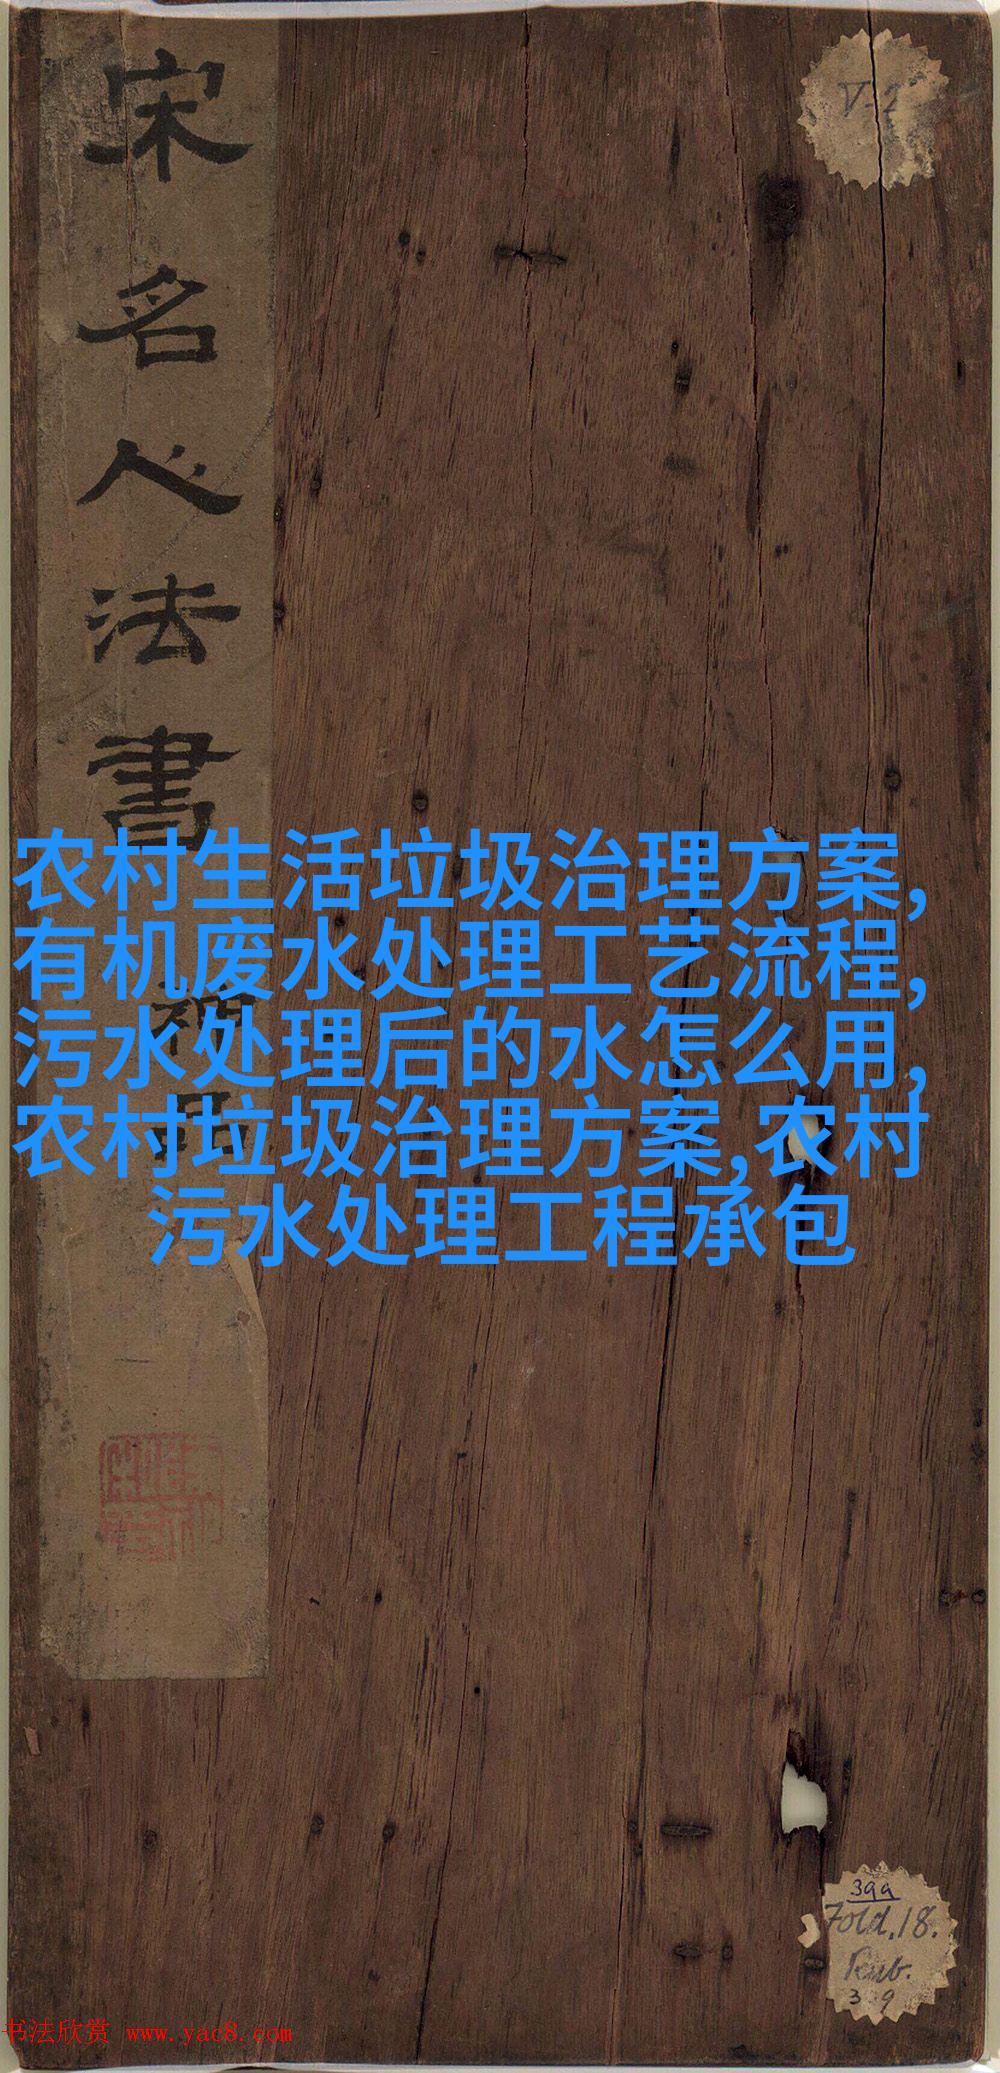 宋名人法書神品
V-2
农村生活垃圾治理方案,
有机废水处理工艺流程,
污水处理后的水怎么用,
农村垃圾治理方案,农村
污水处理工程承包
399
Fold.18.
书法欣赏 www.yac8.com